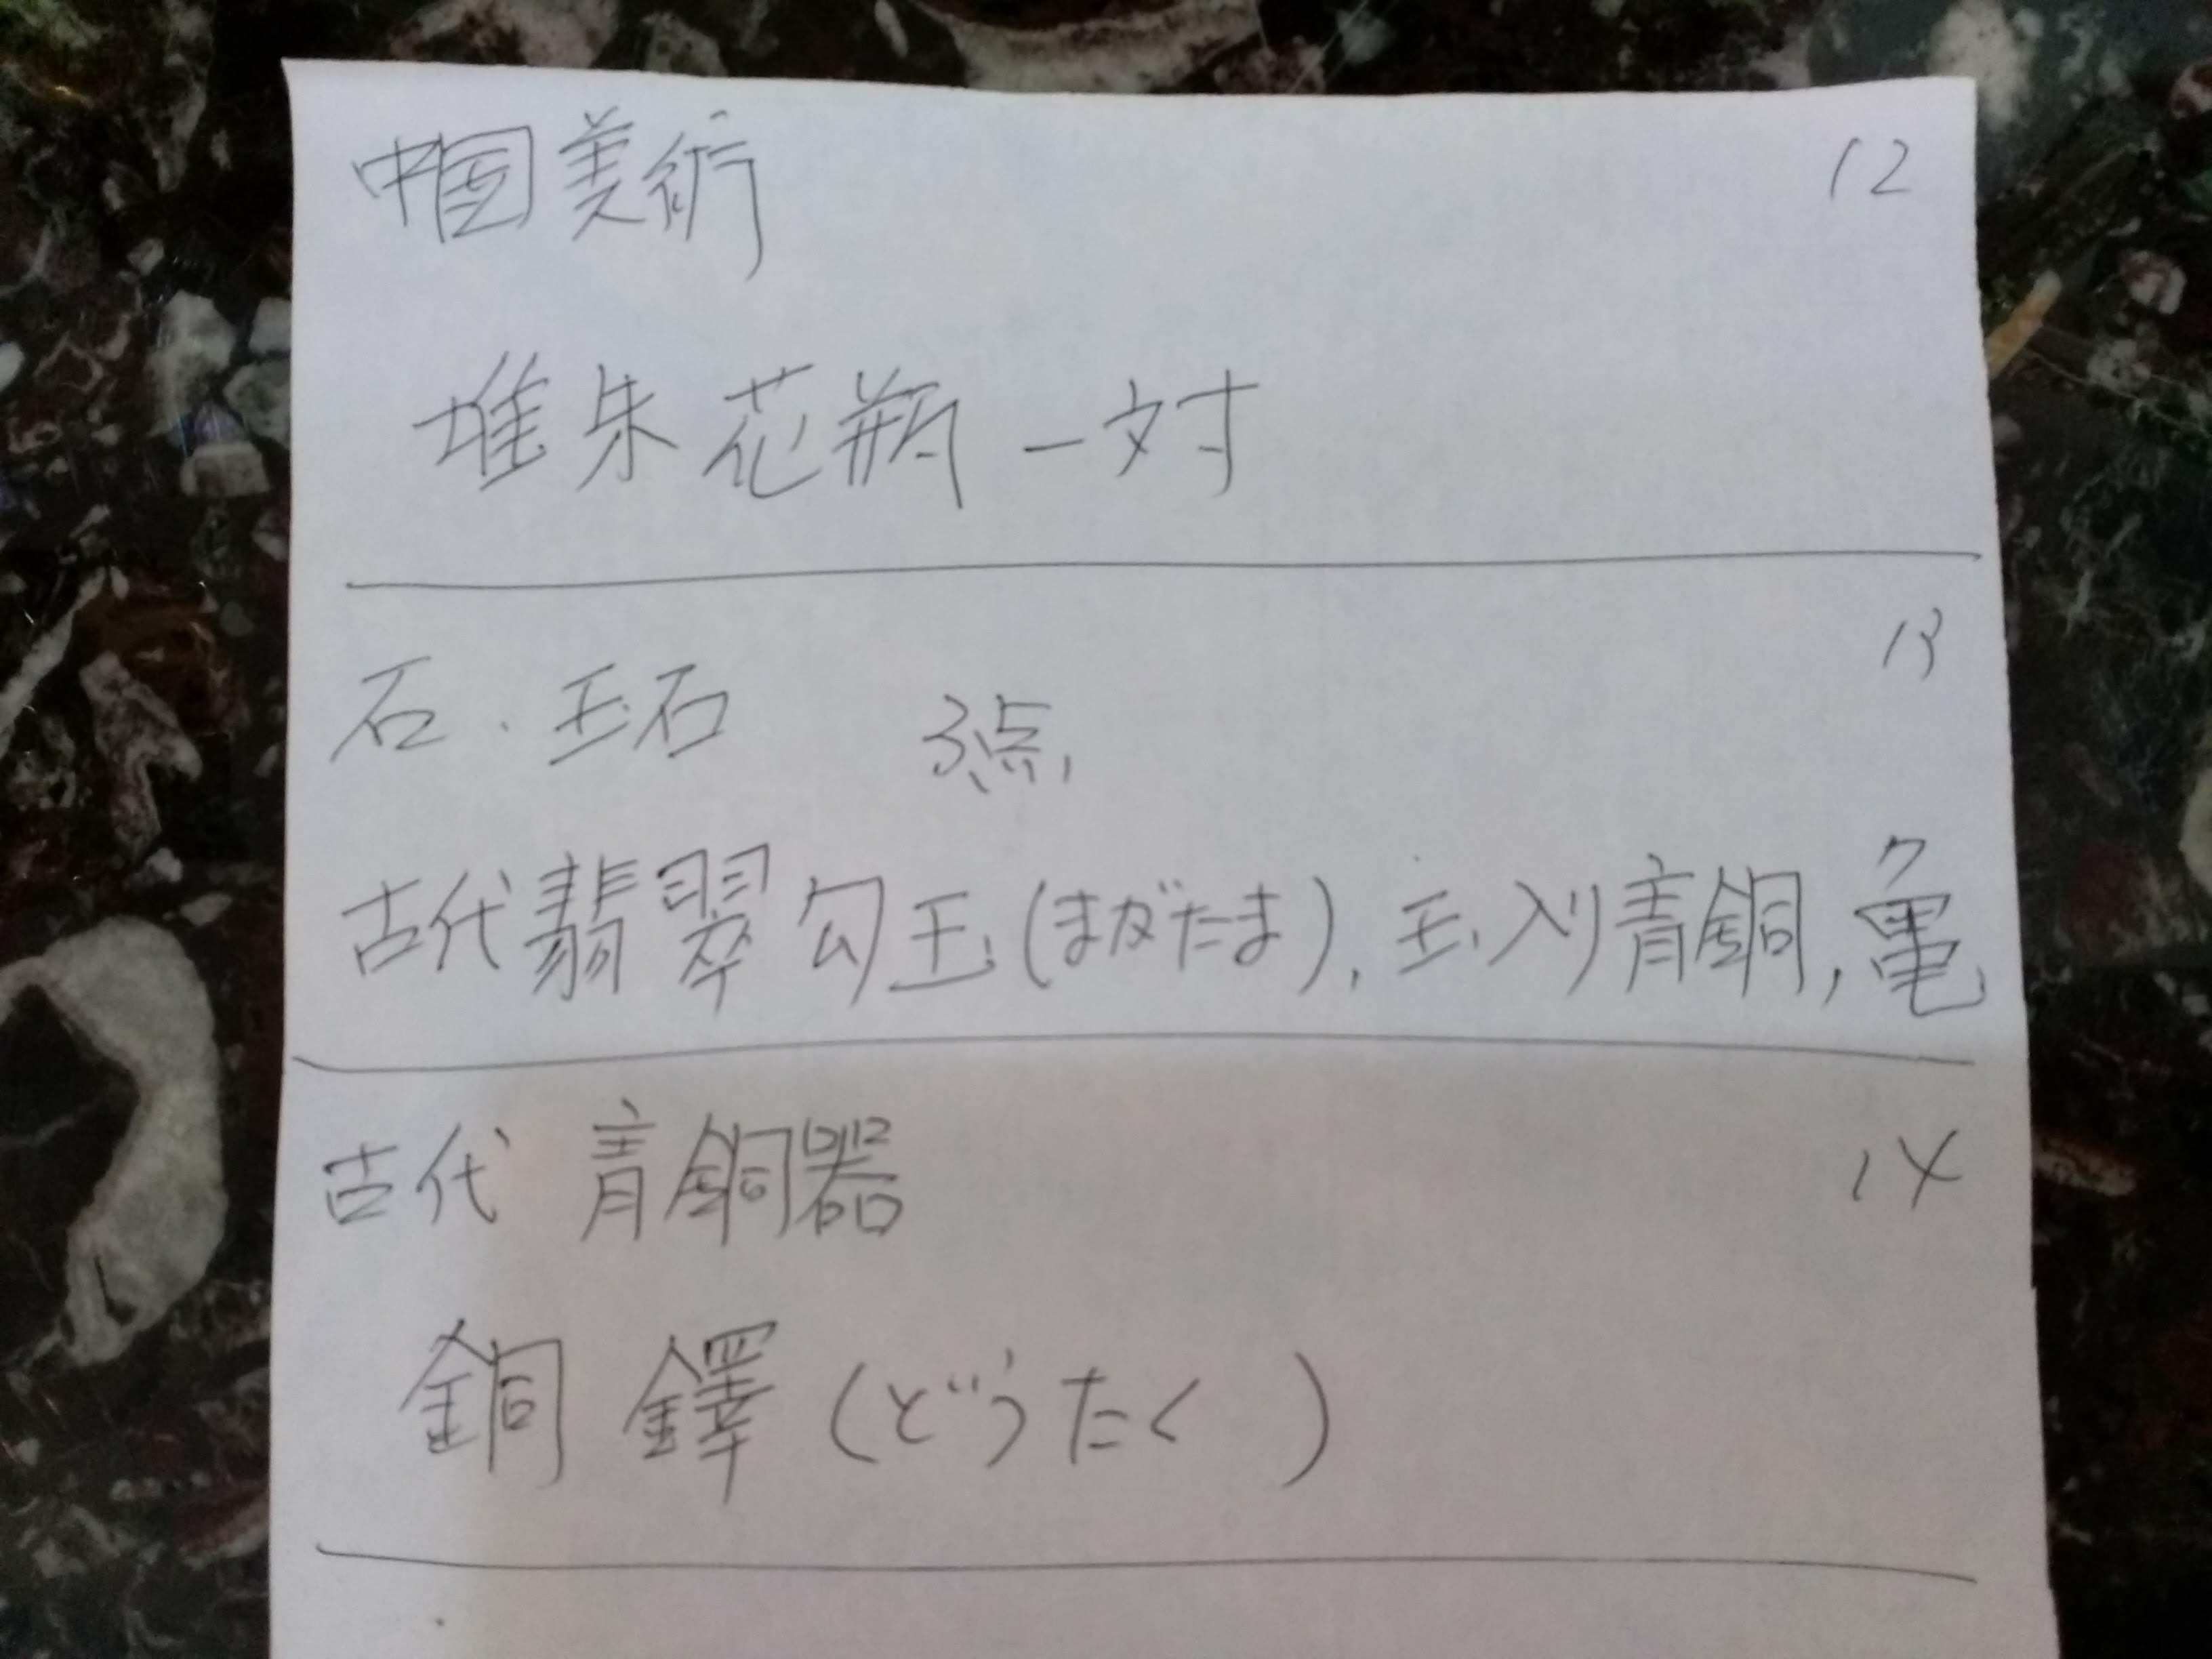 中国美術 12
堆朱花瓶一対
13
石・玉石 3点
古代翡翠勾玉(まがたま)、玉入り青銅,亀
古代 青銅器 14
銅鐸(どうたく)